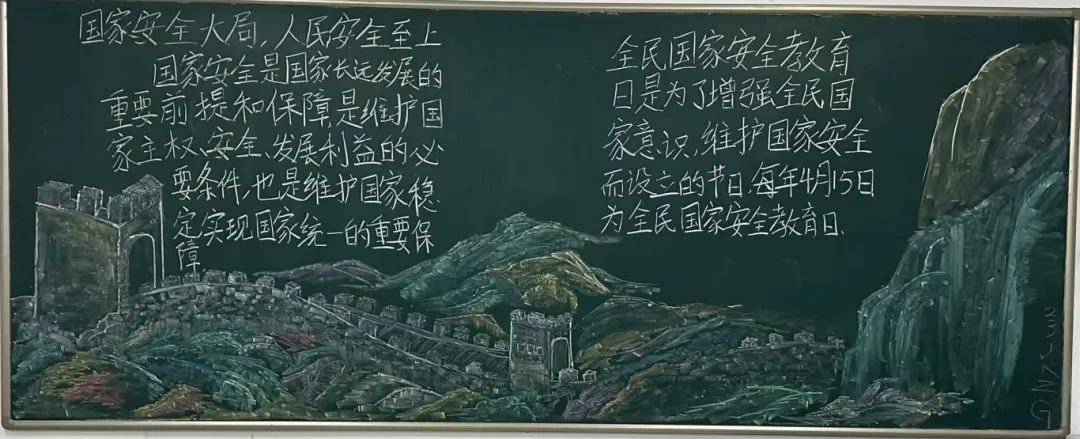 国家安全大局,人民安全至上
国家安全是国家长远发展的
重要前提和保障,是维护国
家主权、安全、发展利益的必
要条件,也是维护国家稳
定实现国家统一的重要保
障
全民国家安全教育
日是为了增强全民国
家意识,维护国家安全
而设立的节日.每年4月15日
为全民国家安全教育日.